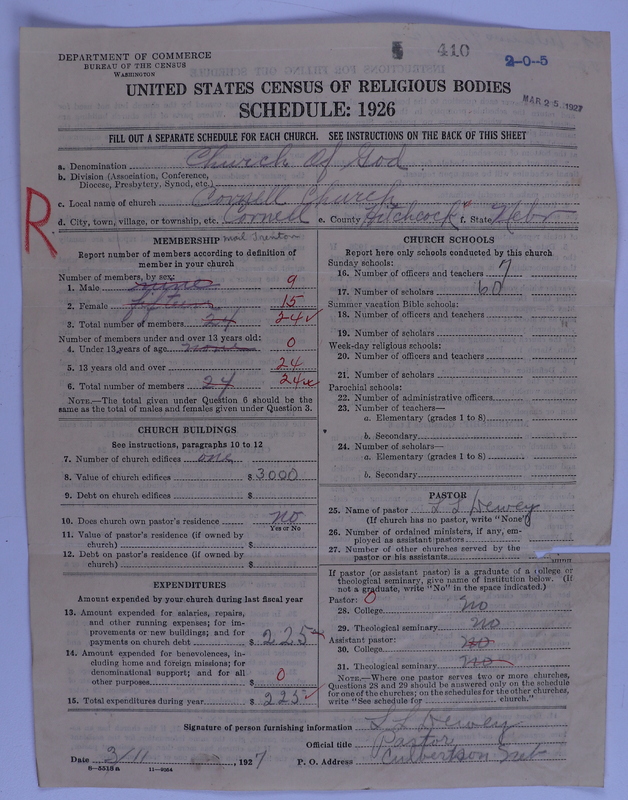 410
2-0-5
DEPARTMENT OF COMMERCE
BUREAU OF THE CENSUS
WASHINGTON
UNITED STATES CENSUS OF RELIGIOUS BODIES
SCHEDULE: 1926
MAR 25, 1927
FILL OUT A SEPARATE SCHEDULE FOR EACH CHURCH. SEE INSTRUCTIONS ON THE BACK OF THIS SHEET
a. Denomination Church of God
b. Division (Association, Conference, Diocese, Presbytery, Synod, etc.)
c. Local name of church Cornell Church
d. City, town, village, or township, etc. Cornell e. County Hitchcock f. State Nebr
R
mail Trenton
MEMBERSHIP
Report number of members according to definition of
member in your church
Number of members, by sex:
1. Male nine 9
2. Female fifteen 15
3. Total number of members 24 24
Number of members under and over 13 years old:
4. Under 13 years of age none 0
5. 13 years old and over 24
6. Total number of members 24 24
NOTE.—The total given under Question 6 should be
same as the total of males and females given under Question 3.
CHURCH BUILDINGS
See instructions, paragraphs 10 to 12
7. Number of church edifices one
8. Value of church edifices $ 3000
9. Debt on church edifices $
10. Does church own pastor's residence no
Yes or No
11. Value of pastor's residence (if owned by
church) $
12. Debt on pastor's residence (if owned by
church) $
EXPENDITURES
Amount expended by your church during last fiscal year
13. Amount expended for salaries, repairs,
and other running expenses; for im-
provements or new buildings; and for
payments on church debt $ 225
14. Amount expended for benevolences, in-
cluding home and foreign missions; for
denominational support; and for all
other purposes $ 0
15. Total expenditures during year $ 225
CHURCH SCHOOLS
Report here only schools conducted by this church
Sunday schools:
16. Number of officers and teachers 7
17. Number of scholars 60
Summer vacation Bible schools:
18. Number of officers and teachers
19. Number of scholars
Week-day religious schools:
20. Number of officers and teachers
21. Number of scholars
Parochial schools:
22. Number of administrative officers
23. Number of teachers—
a. Elementary (grades 1 to 8)
b. Secondary
24. Number of scholars—
a. Elementary (grades 1 to 8)
b. Secondary
PASTOR
25. Name of pastor L L Dewey
(If church has no pastor, write "None")
26. Number of ordained ministers, if any, em-
ployed as assistant pastors
27. Number of other churches served by the
pastor or his assistants
If pastor (or assistant pastor) is a graduate of a college or
theological seminary, give name of institution below. (If
not a graduate, write "No" in the space indicated.)
Pastor: 0
28. College no
29. Theological seminary no
Assistant pastor:
30. College no
31. Theological seminary no
NOTE.—Where one pastor serves two or more churches,
Questions 28 and 29 should be answered only on the schedule
for one of the churches; on the schedules for the other churches,
write "See schedule for church."
Signature of person furnishing information L L Dewey
Official title Pastor
Date 3/11, 1927 P. O. Address Culbertson Neb
8—5513a 11—9354